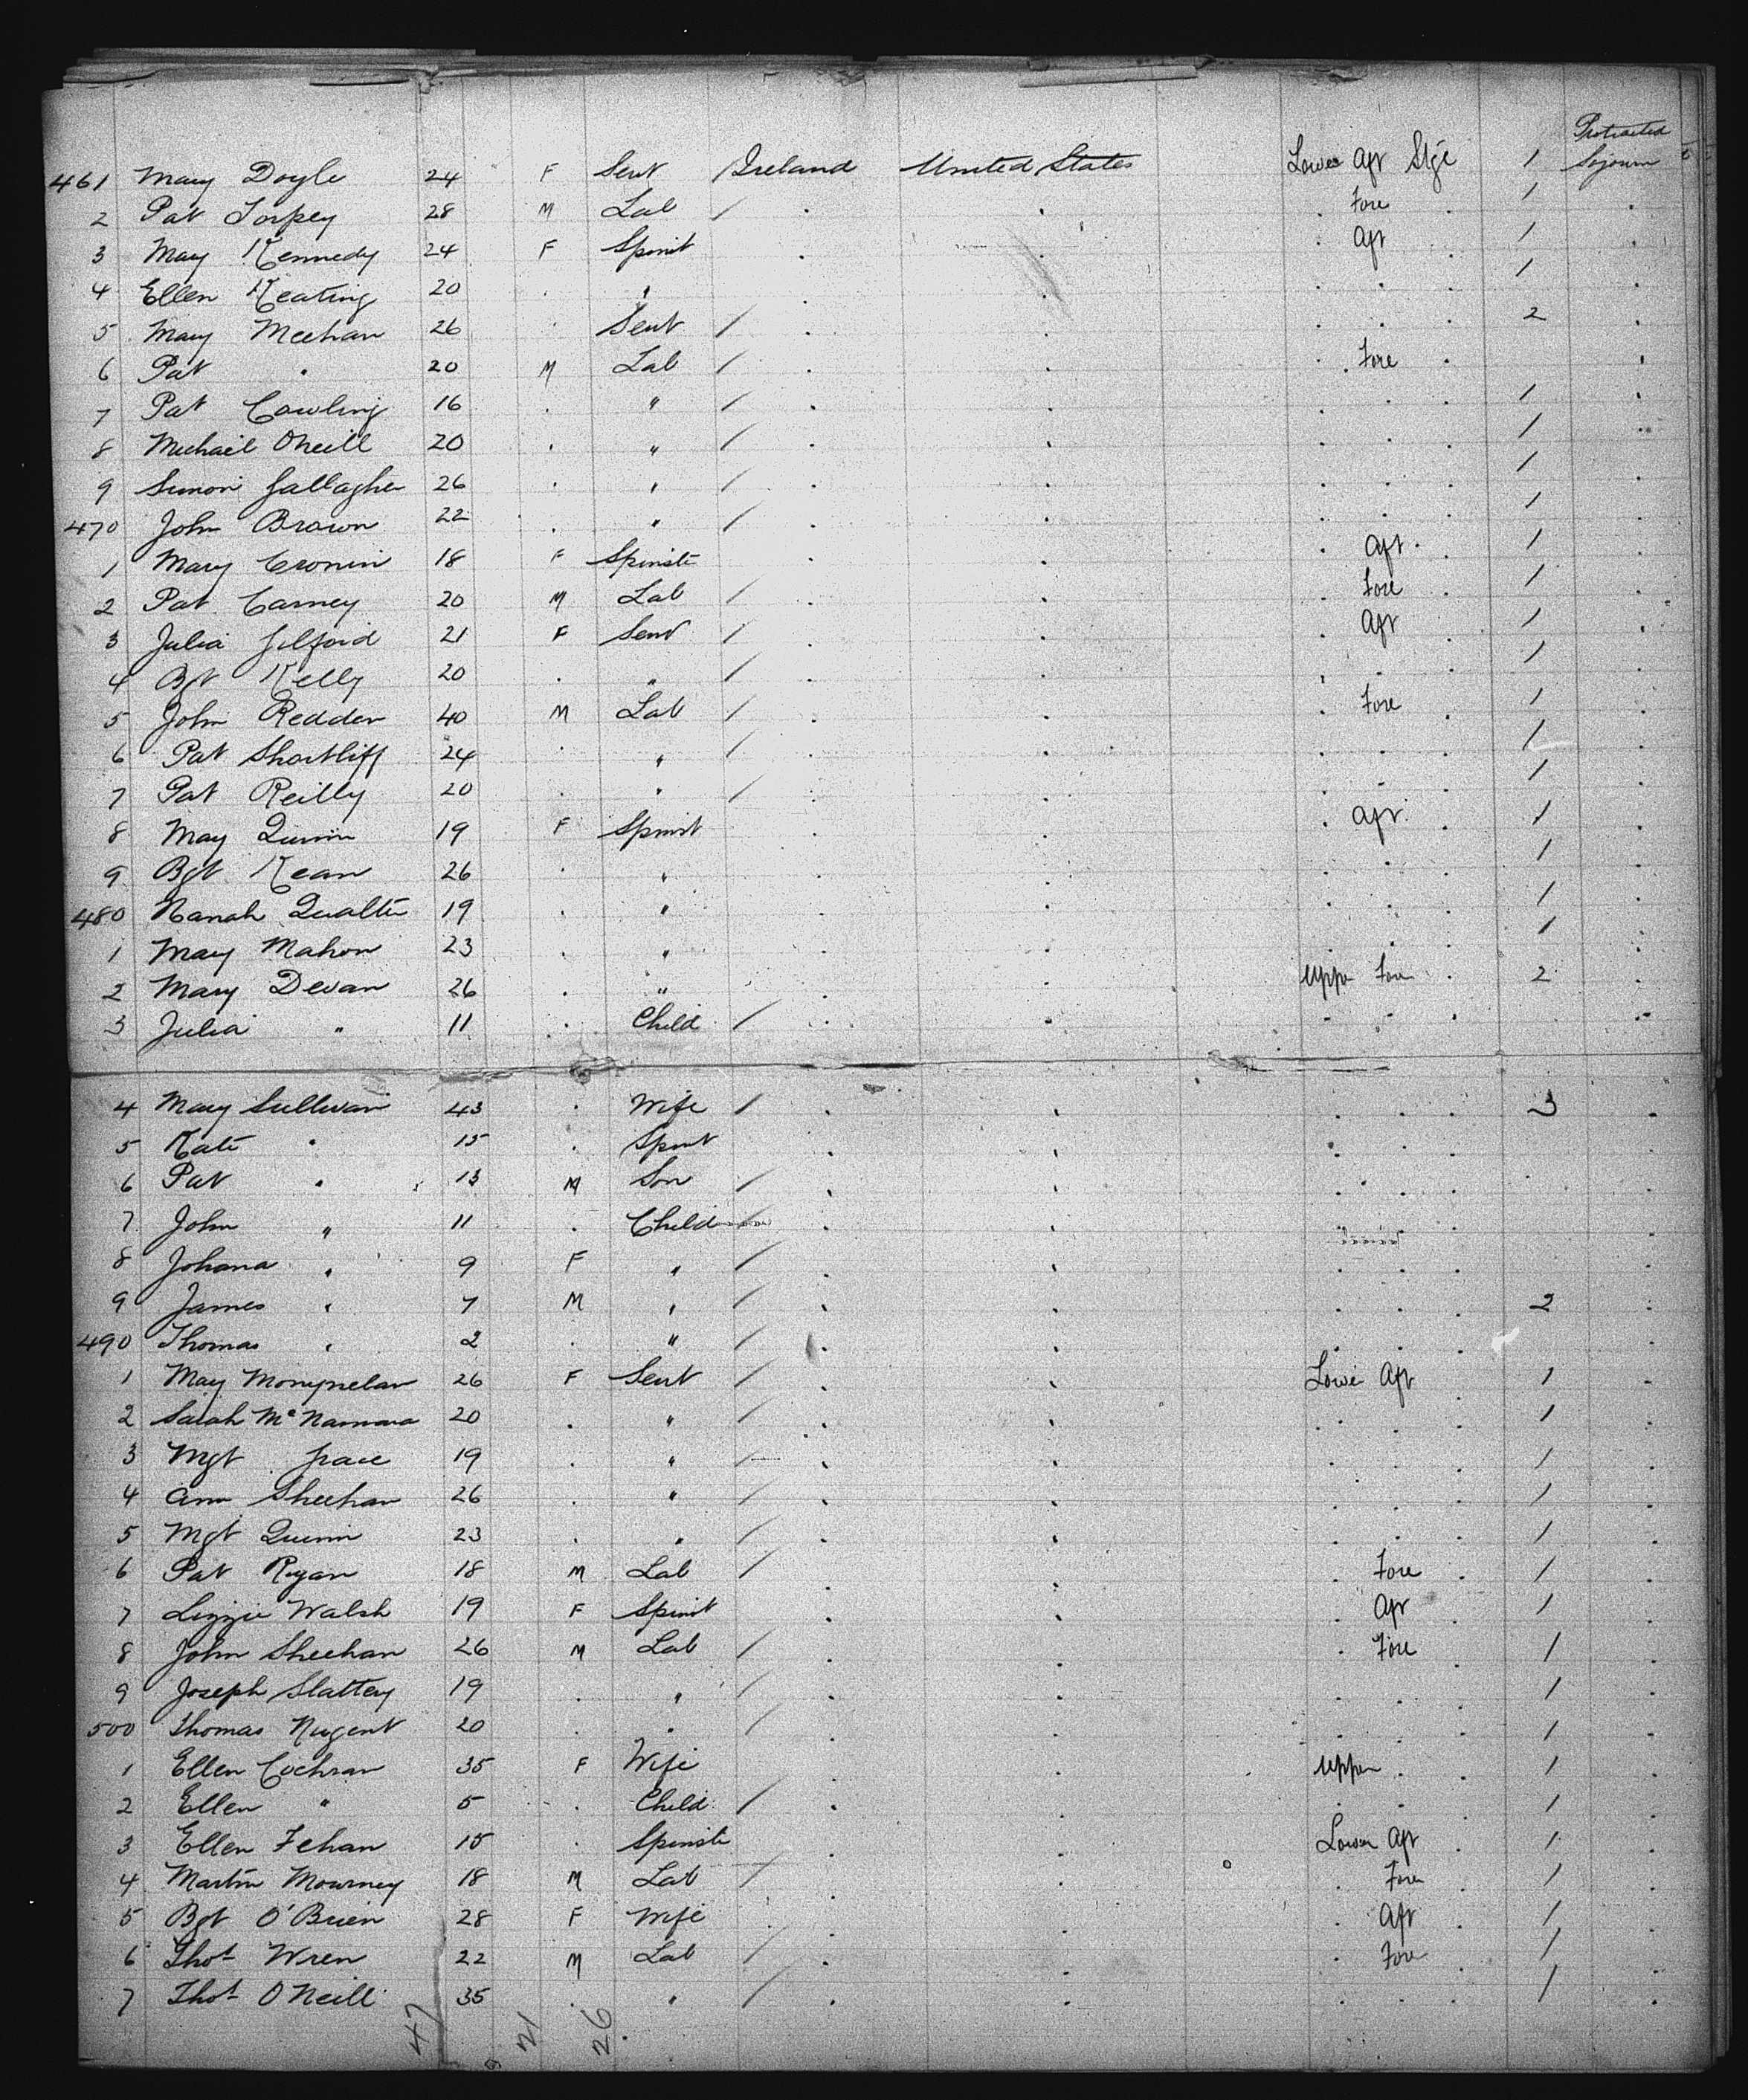 Protracted
461 Mary Doyle 24 F Servt / Ireland United States Lower Aft Stge 1 Sojourn
2 Pat Torpey 28 M Lab / . . . Fore . 1 .
3 Mary Kennedy 24 F Spinst . . . Aft . 1 .
4 Ellen Keating 20 . " . . . . . 1 .
5 Mary Meehan 26 . Servt / . . . . . 2 .
6 Pat " 20 M Lab / . . . Fore . .
7 Pat Cowling 16 . " / . . . . . 1 .
8 Michael Oneill 20 . " / . . . . . 1 .
9 Simon Gallagher 26 . " / . . . . . 1 .
470 John Brown 22 . " / . . . . . 1 .
1 Mary Cronin 18 F Spinste . . . Aft . 1 .
2 Pat Carney 20 M Lab / . . . Fore . 1 .
3 Julia Gilford 21 F Servt / . . . Aft . 1 .
4 Bgt Kelly 20 . " / . . . . . 1 .
5 John Redden 40 M Lab / . . . Fore . 1 .
6 Pat Shortliff 24 . " / . . . . . 1 .
7 Pat Reilly 20 . " / . . . . . 1 .
8 May Quinn 19 F Spinst . . . Aft . 1 .
9 Bgt Kean 26 . " . . . . . 1 .
480 Hanah Qualte 19 . " . . . . . 1 .
1 Mary Mahon 23 . " . . . . . 1 .
2 Mary Devan 26 . " . . Upper Fore . 2 .
3 Julia " 11 . Child / . . . . . .
4 Mary Sullivan 43 . Wife / . . . . . 3 .
5 Kate " 15 . Spinst . . . . . .
6 Pat " 13 M Son / . . . . . .
7 John " 11 . Child / . . .
8 Johana " 9 F " / . . . . . .
9 James " 7 M " / . . . . . 2 .
490 Thomas " 2 . " / . . . . . .
1 May Monynelan 26 F Servt / . . Lower Aft . 1 .
2 Sarah McNamara 20 . " / . . . . . 1 .
3 Mgt Grace 19 . " / . . . . . 1 .
4 Ann Sheehan 26 . " / . . . . . 1 .
5 Mgt Quinn 23 . " / . . . . . 1 .
6 Pat Ryan 18 M Lab / . . . Fore . 1 .
7 Lizzie Walsh 19 F Spinst . . . Aft . 1 .
8 John Sheehan 26 M Lab / . . . Fore . 1 .
9 Joseph Slattery 19 . " / . . . . . 1 .
500 Thomas Nugent 20 . " / . . . . . 1 .
1 Ellen Cochran 35 F Wife . . Upper . . 1 .
2 Ellen " 5 . Child / . . . . 1 .
3 Ellen Fehan 15 . Spinste . . Lower Aft . 1 .
4 Martin Mourney 18 M Lab / . . . Fore . 1 .
5 Bgt O'Brien 28 F Wife . . . Aft . 1 .
6 Thos Wren 22 M Lab / . . . Fore . 1 .
7 Thos O Neill 35 . " / . . . . . 1 .
47 21 26